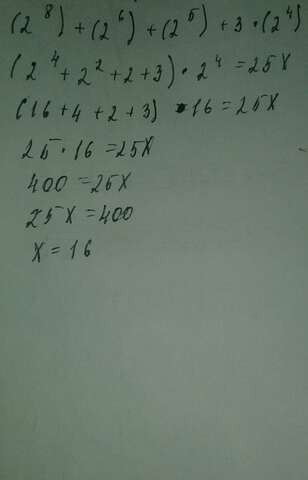 (2⁸) + (2⁶) + (2⁵) + 3 · (2⁴)
(2⁴ + 2² + 2 + 3) · 2⁴ = 25X
(16 + 4 + 2 + 3) · 16 = 25X
25 · 16 = 25X
400 = 25X
25X = 400
X = 16